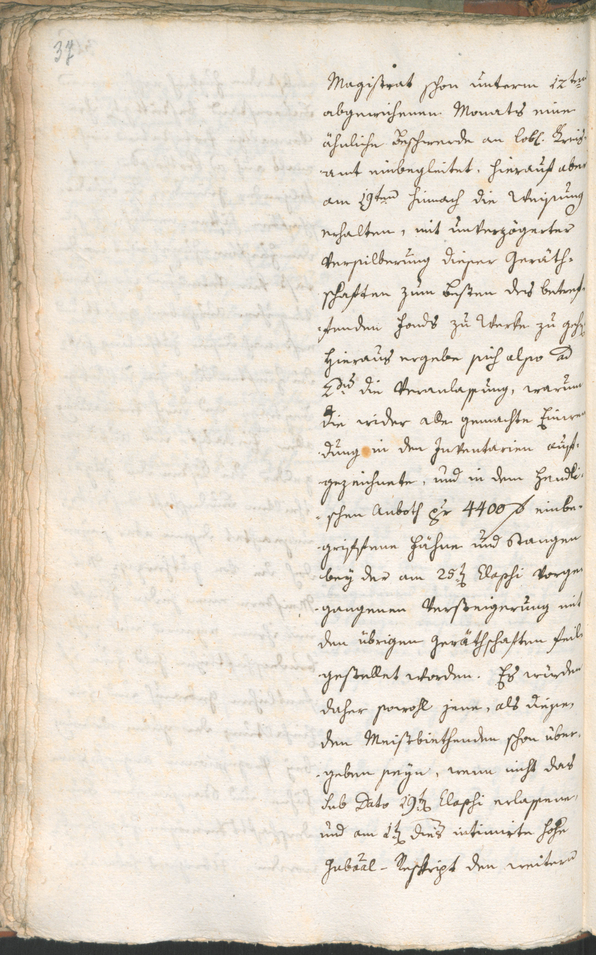 34
Magistrat schon unterm 12ten
abgewichenen Monats eine
ähnliche Beschwerde an löbl. Kreis-
amt einbegleitet. hierauf aber
am 19ten hienach die Weisung
erhalten, mit unverzögerter
Versilberung dieser Geräth-
schaften zum Besten des betref-
fenden Fonds zu Werke zu gehn
Hieraus ergebe sich also ad
2dum die Veranlassung, warum
die wider alle gemachte Einwen
dung in den Inventarien auf-
gezeichnete, und in dem Hendli-
schen Anboth pr 4400 f einbe-
griffene Hähne und Stangen
bey der am 25t Elapsi vorge
gangenen Versteigerung mit
den übrigen Geräthschaften feil
gestellet worden. Es würden
daher sowohl jene, als diese,
den Meistbiethenden schon über-
geben seyn, wenn nicht das
sub Dato 29t Elapsi erlassene,
und am 1t dies intimirte hohe
Gubaal-Reskript den weitern